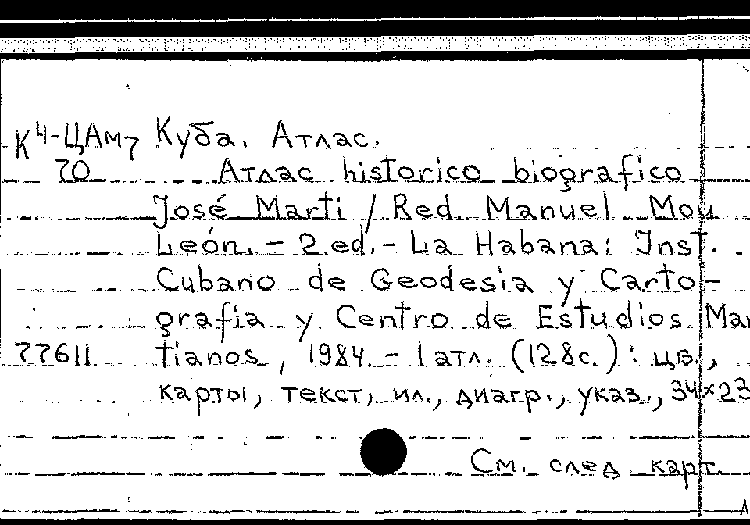 К4-ЦАм7 Куба. Атлас.
70 Атлас historico biografico
José Marti / Red. Manuel Mou
León. - 2 ed. - La Habana: Inst.
Cubano de Geodesia y Carto-
grafia y Centro de Estudios Mar
77611 tianos, 1984. - 1 атл. (128с.): цв.,
карты, текст, ил., диагр., указ., 34×23
См. след карт.